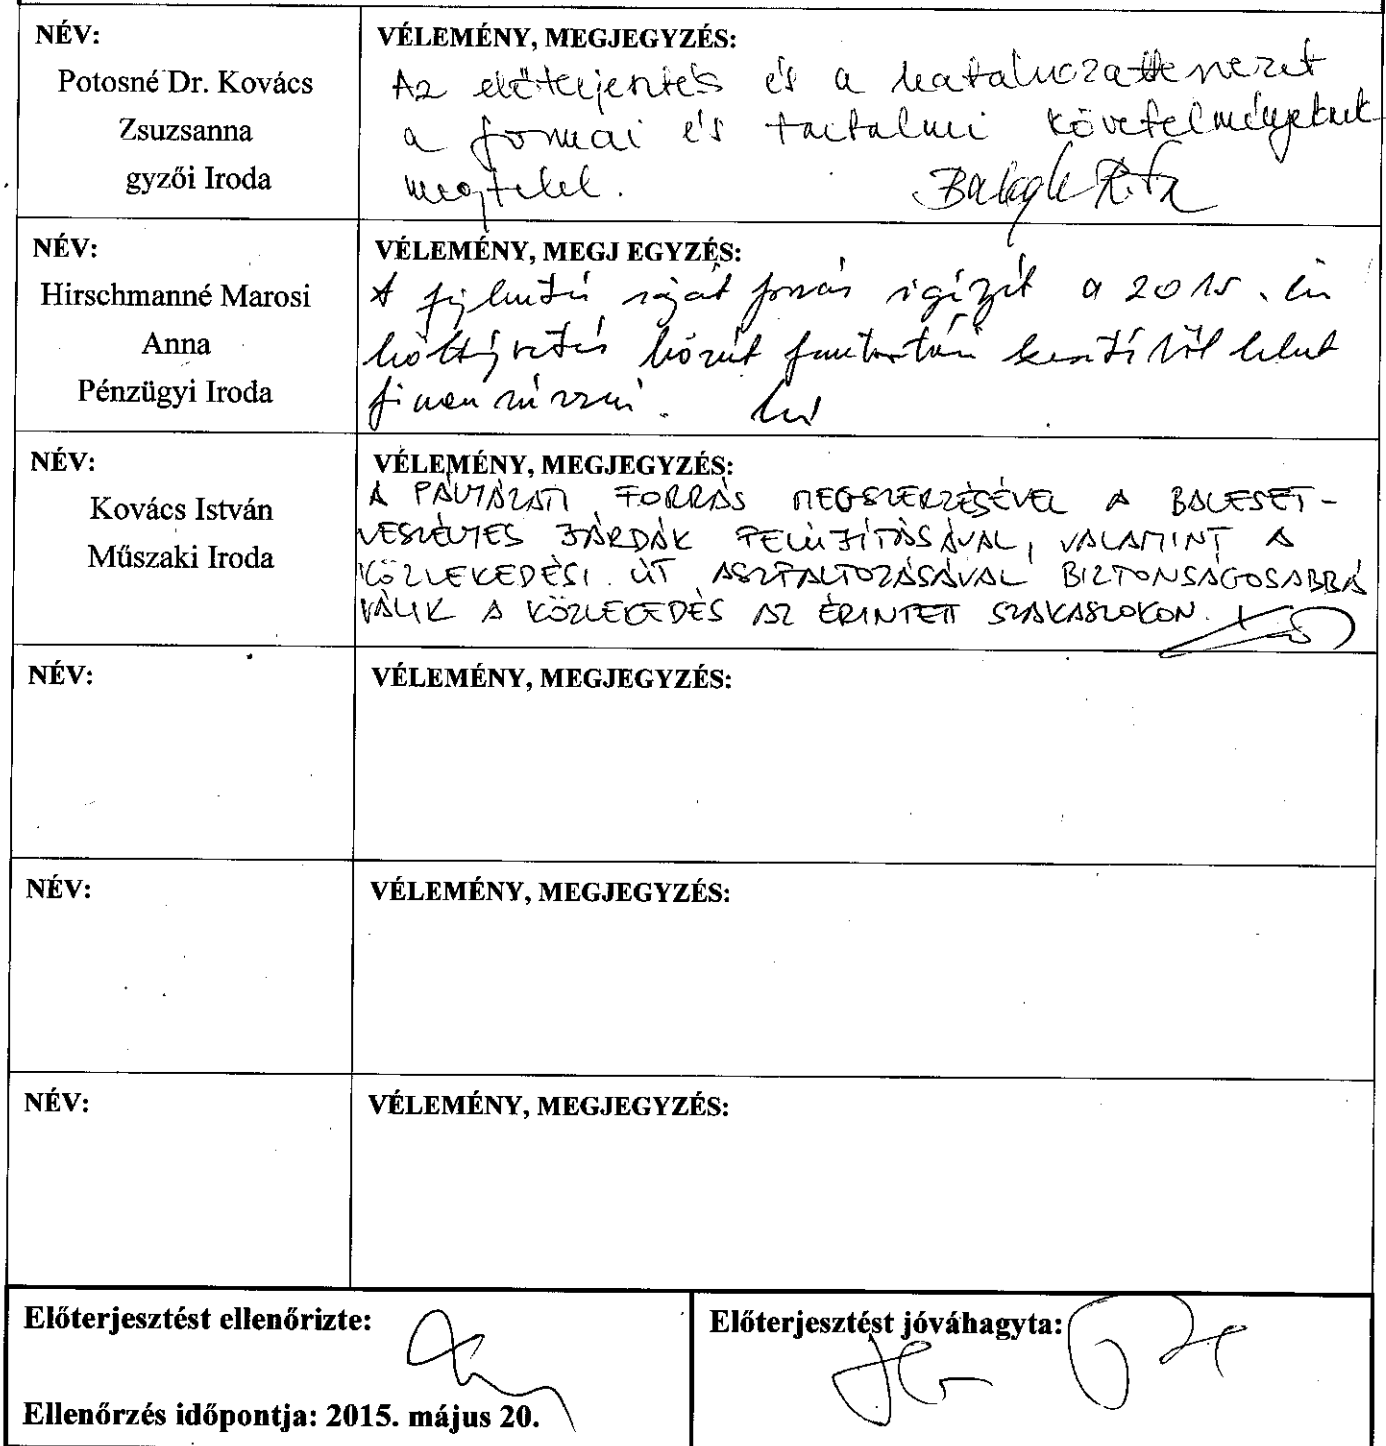 NÉV:
Potosné Dr. Kovács
Zsuzsanna
gyzői Iroda
VÉLEMÉNY, MEGJEGYZÉS:
Az előterjesztés és a határozattervezet
a formai és tartalmi követelményeknek
megfelel. Balogh Rita
NÉV:
Hirschmanné Marosi
Anna
Pénzügyi Iroda
VÉLEMÉNY, MEGJ EGYZÉS:
A fejlesztés saját forrás igényét a 2015. évi
költségvetés terhére
finanszírozni.
NÉV:
Kovács István
Műszaki Iroda
VÉLEMÉNY, MEGJEGYZÉS:
A PÁLYÁZATI FORRÁS MEGSZERZÉSÉVEL A BALESET-
VESZÉLYES JÁRDÁK FELÚJÍTÁSÁVAL, VALAMINT A
KÖZLEKEDÉSI ÚT ASZFALTOZÁSÁVAL BIZTONSÁGOSABBÁ
VÁLIK A KÖZLEKEDÉS AZ ÉRINTETT SZAKASZOKON.
NÉV:
VÉLEMÉNY, MEGJEGYZÉS:
NÉV:
VÉLEMÉNY, MEGJEGYZÉS:
NÉV:
VÉLEMÉNY, MEGJEGYZÉS:
Előterjesztést ellenőrizte:
Ellenőrzés időpontja: 2015. május 20.
Előterjesztést jóváhagyta: